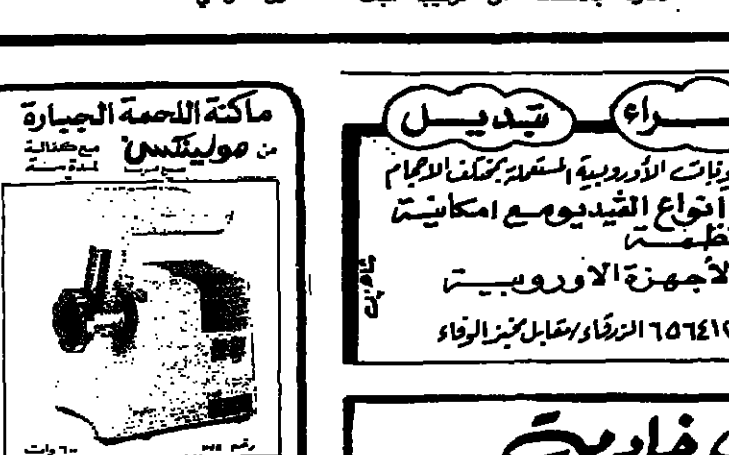 ماكنة اللحمة الجبارة
من مولينكس مع كفالة
لمدة سنة
رقم ٣٧٤
٦٠٠ وات
ـراء تبديل
الأوروبية المستعملة بمختلف الاحجام
انواع الفيديو مع امكانية
الأجهزة الاوروبية
٦٥٦٤١٢ الزرقاء/مقابل مخبز الوفاء
خادمة